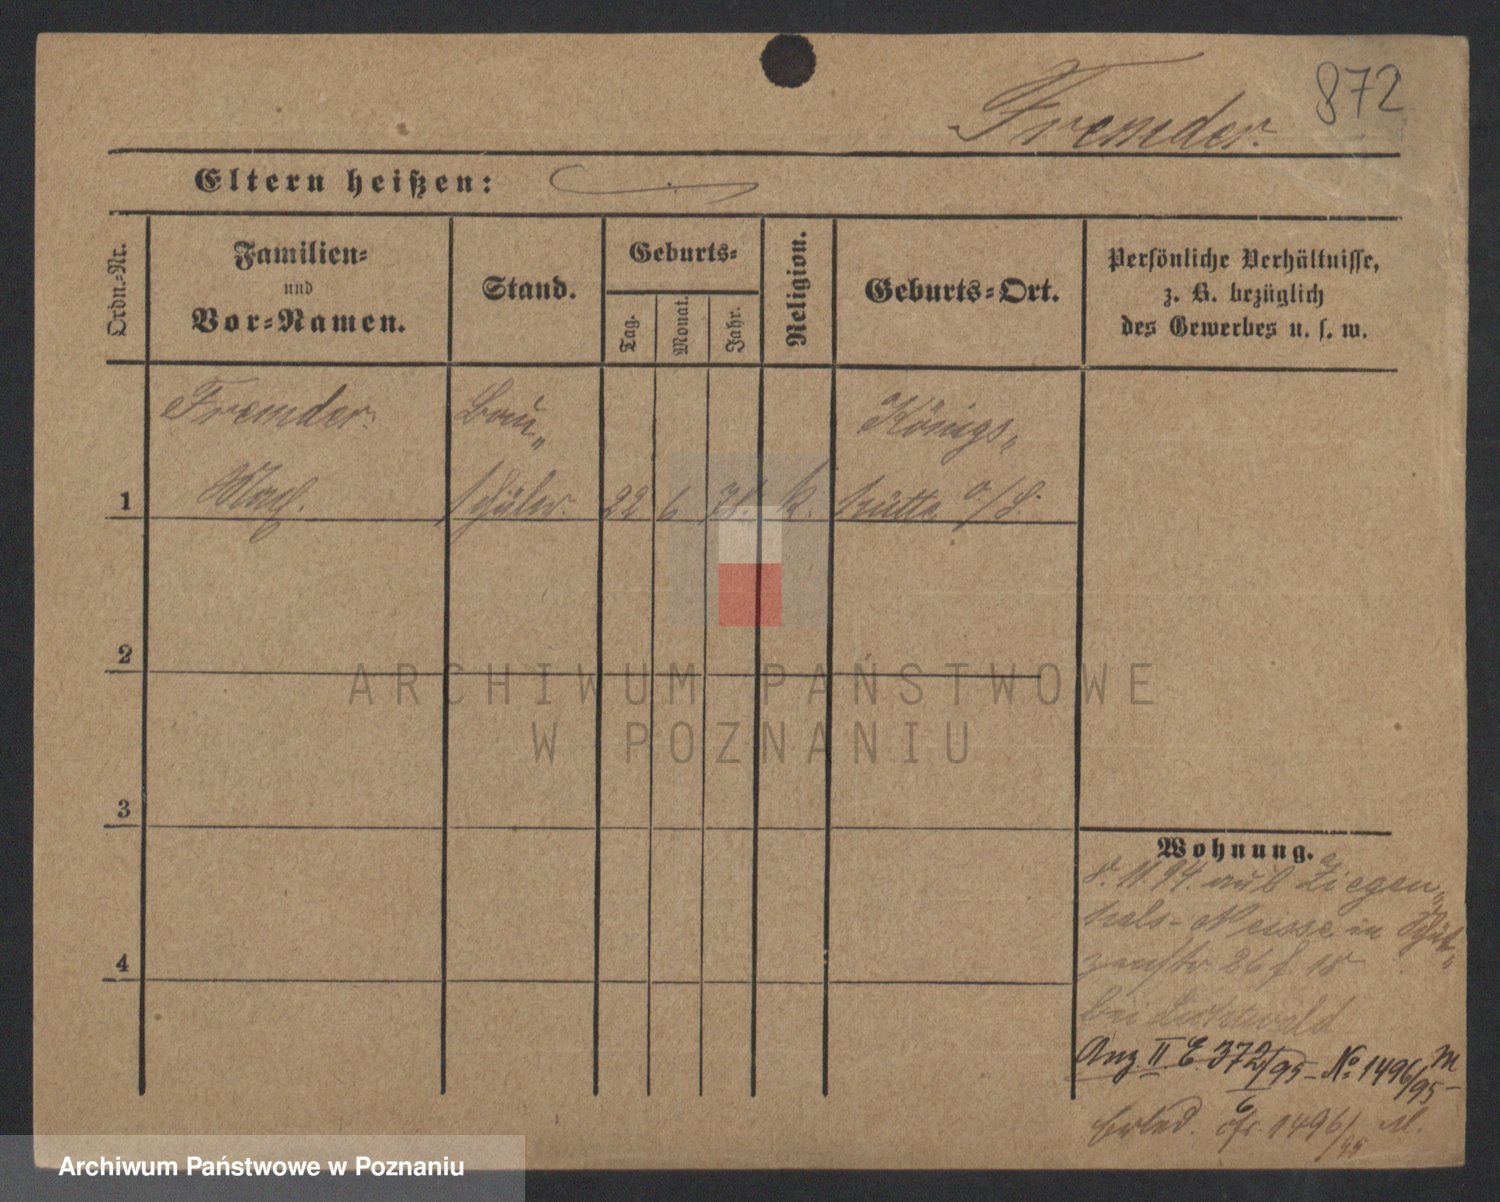 872
Fremder.
Eltern heißen:
Ordn.-Nr.
Familien-
und
Vor-Namen.
Stand.
Geburts-
Tag.
Monat.
Jahr.
Religion.
Geburts-Ort.
Persönliche Verhältnisse,
z. B. bezüglich
des Gewerbes u. s. w.
Fremder Bau- Königs-
1 Max. schüler. 22 6 78. k. hütte O/S.
2
3
4
Wohnung.
8. 11. 94. aus Ziegen-
hals-Neisse in Schüt-
zenstr. 26
bei
Anz. II E. 372/95 - No. 1496/95 M
6
Erled. cfr. 1496/95 M.
ARCHIWUM PAŃSTWOWE
W POZNANIU
Archiwum Państwowe w Poznaniu